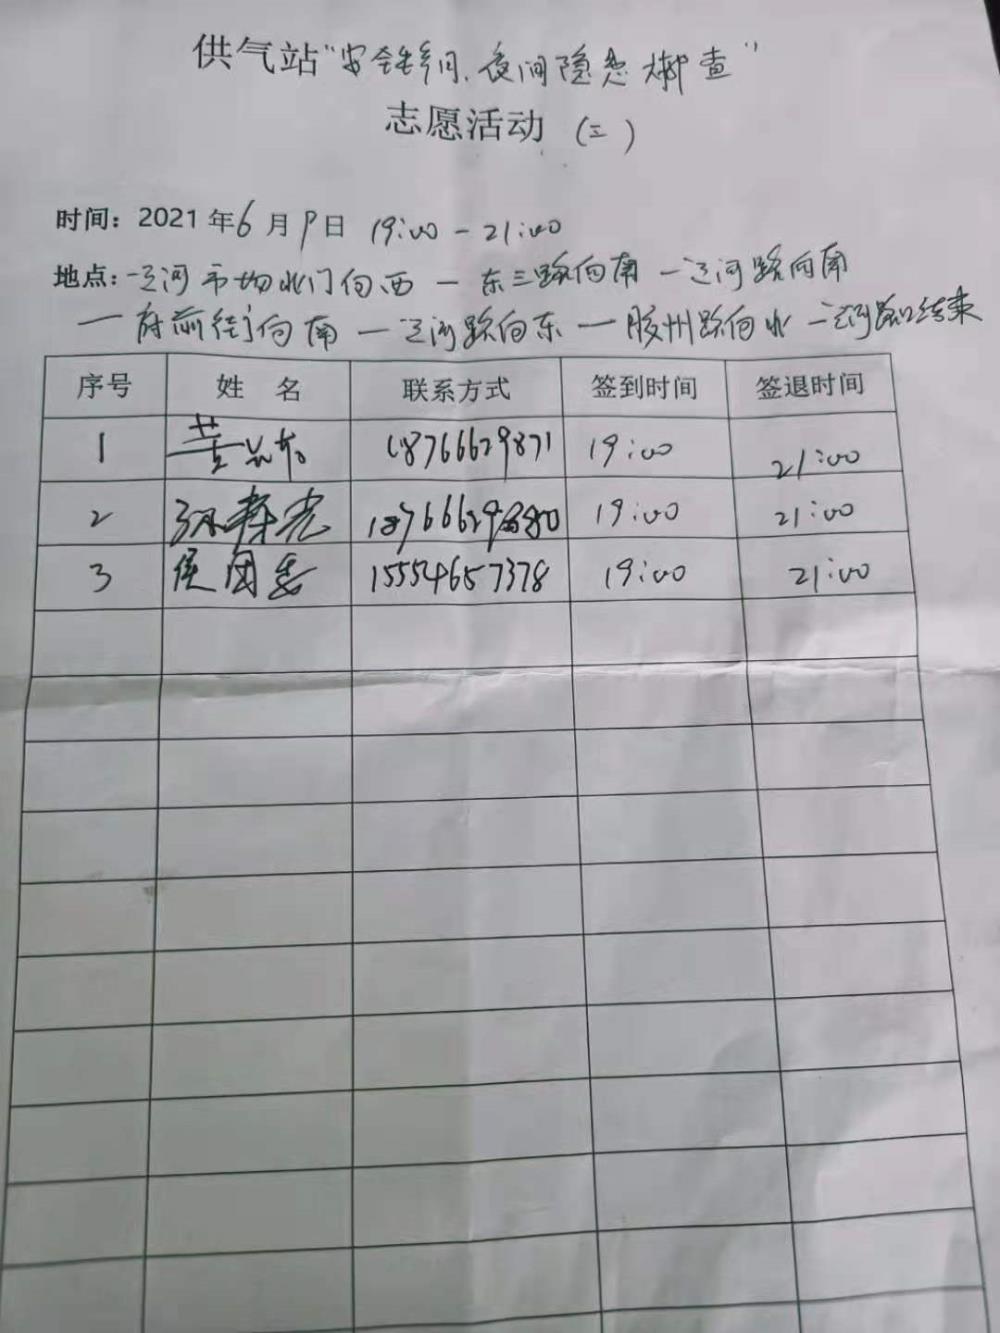 供气站"安全乡间、夜间隐患排查"
志愿活动 (三)
时间: 2021年6月9日 19:00-21:00
地点: 辽河市场北门向西一东三路向南一辽河路向南
一府前街向南一辽河路向东一胶州路向北一辽河路口结束
序号 姓 名 联系方式 签到时间 签退时间
1 18766629871 19:00 21:00
2 孙寿光 19:00 21:00
3 侯国 15554657378 19:00 21:00